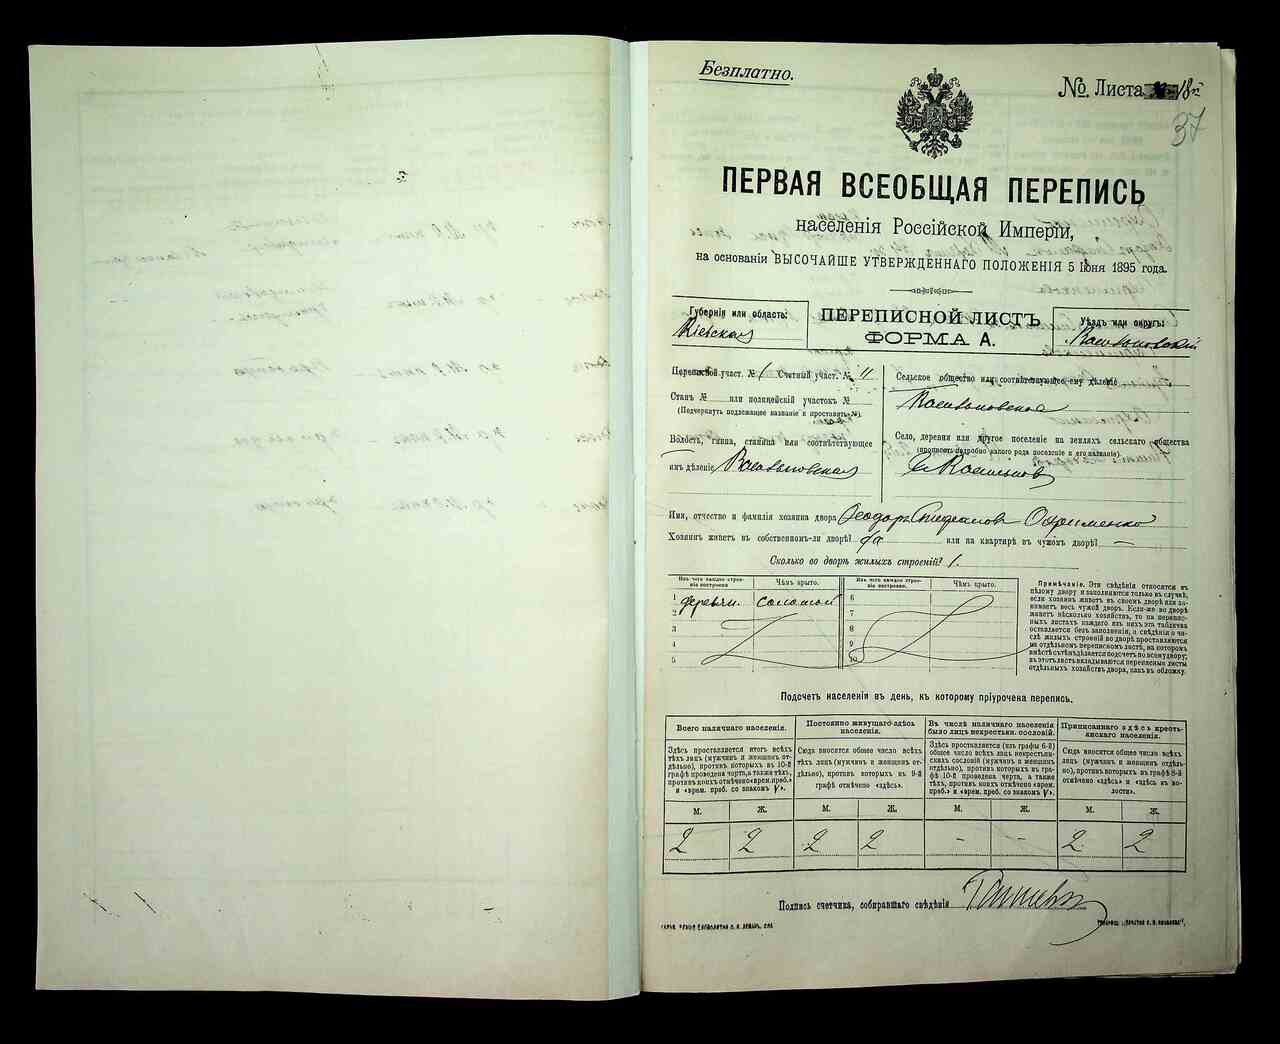 Безплатно.
№. Листа 18
37
ПЕРВАЯ ВСЕОБЩАЯ ПЕРЕПИСЬ
населенія Россійской Имперіи,
на основаніи ВЫСОЧАЙШЕ УТВЕРЖДЕННАГО ПОЛОЖЕНІЯ 5 Іюня 1895 года.
Губернія или область:
Кіевская
ПЕРЕПИСНОЙ ЛИСТЪ
ФОРМА А.
Уѣздъ или округъ:
Васильковскій
Переписной участ. № 1 Счетный участ. № 11
Станъ № или полицейскій участокъ №
(Подчеркнуть подлежащее названіе и проставить №).
Волость, гмина, станица или соотвѣтствующее
имъ дѣленіе Васильковская
Сельское общество или соотвѣтствующее ему дѣленіе
Васильковское
Село, деревня или другое поселеніе на земляхъ сельскаго общества
(прописать подробно какого рода поселеніе и его названіе).
Васильков
Имя, отчество и фамилія хозяина двора Феодоръ Стефановъ Охрименко
Хозяинъ живетъ въ собственномъ-ли дворѣ? да или на квартирѣ въ чужомъ дворѣ? —
Сколько во дворѣ жилыхъ строеній? 1.
Изъ чего каждое строеніе построено. Чѣмъ крыто. Изъ чего каждое строеніе построено. Чѣмъ крыто.
1 деревян. соломой 6
2 7
3 8
4 9
5 10
Примѣчаніе. Эти свѣдѣнія относятся къ
цѣлому двору и заполняются только въ случаѣ,
если хозяинъ живетъ въ своемъ дворѣ или занимаетъ
весь чужой дворъ. Если-же во дворѣ
живетъ нѣсколько хозяйствъ, то на переписныхъ
листахъ каждаго изъ нихъ эта табличка
оставляется безъ заполненія, а свѣдѣнія о числѣ
жилыхъ строеній во дворѣ проставляются
на отдѣльномъ переписномъ листѣ, на которомъ
вмѣстѣ съ тѣмъ дѣлается подсчетъ по всему двору;
въ этотъ листъ вкладываются переписные листы
отдѣльныхъ хозяйствъ двора, какъ въ обложку.
Подсчетъ населенія въ день, къ которому пріурочена перепись.
Всего наличнаго населенія.
Здѣсь проставляется итогъ всѣхъ
тѣхъ лицъ (мужчинъ и женщинъ отдѣльно),
противъ которыхъ въ 10-й
графѣ проведена черта, а также тѣхъ,
противъ коихъ отмѣчено «врем. преб.»
и «врем. преб. со знакомъ V».
Постоянно живущаго здѣсь
населенія.
Сюда вносится общее число всѣхъ
тѣхъ лицъ (мужчинъ и женщинъ отдѣльно),
противъ которыхъ въ 9-й
графѣ отмѣчено «здѣсь».
Въ числѣ наличнаго населенія
было лицъ некрестьян. сословій.
Здѣсь проставляется (изъ графы 6-й)
общее число всѣхъ лицъ некрестьянскихъ
сословій (мужчинъ и женщинъ
отдѣльно), противъ которыхъ въ графѣ
10-й проведена черта, а также
тѣхъ, противъ коихъ отмѣчено «врем.
преб.» и «врем. преб. со знакомъ V».
Приписаннаго здѣсь крестьянскаго
населенія.
Сюда вносится общее число всѣхъ
лицъ (мужчинъ и женщинъ отдѣльно),
противъ которыхъ въ графѣ 8-й
отмѣчено «здѣсь» и «здѣсь въ волости».
М. Ж. М. Ж. М. Ж. М. Ж.
2 2 2 2 - - 2 2
Подпись счетчика, собиравшаго свѣдѣнія